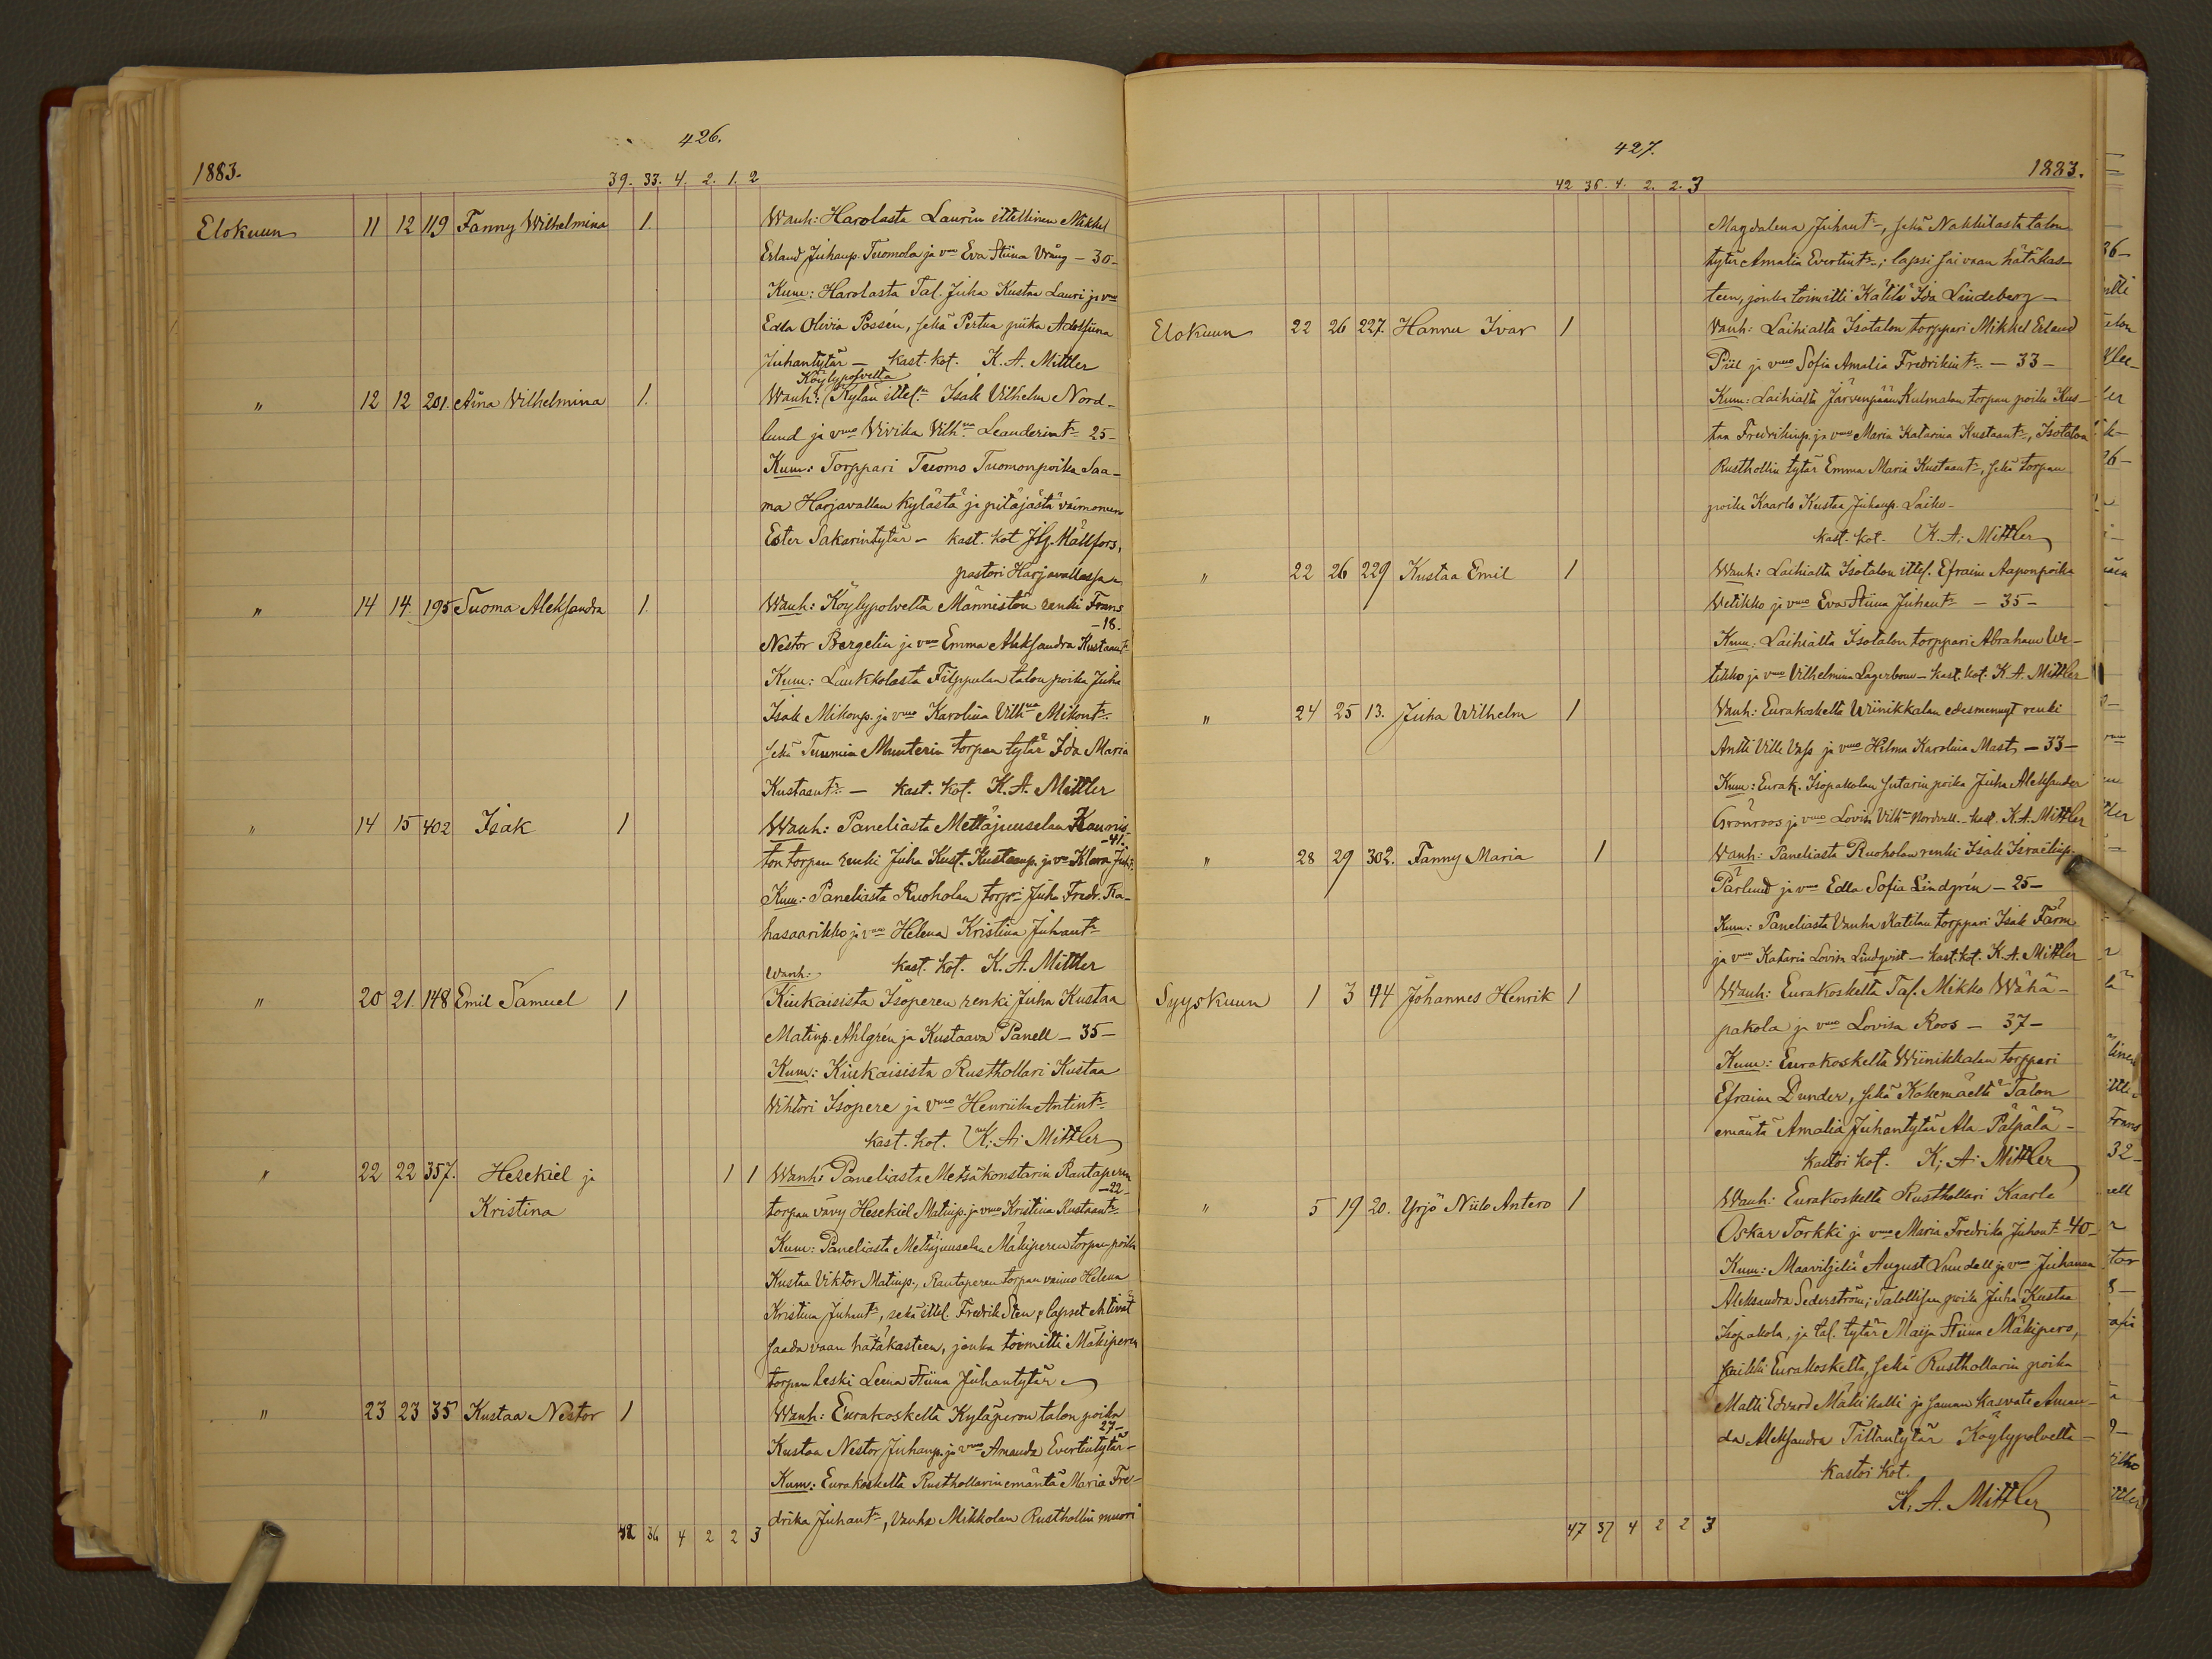 426.
1883.
39. 33. 4. 2. 1. 2
Elokuun 11 12 119 Fanny Wilhelmina 1. Wanh: Harolasta Laurin ittellinen Mikkel
Erland Juhanp. Tuomola ja vmo Eva Stiina Vräng – 30 –
Kum: Harolasta Tal. Juha Kustaa Lauri ja vmo
Edla Olivia Possén, sekä Pertun piika Adolfiina
Juhantytär – kast. kot. K. A. Mittler
Köylypolvelta
" 12 12 201. Aina Vilhelmina 1. Wanh: Kylän ittel:n Isak Vilhelm Nord-
lund ja vmo Vivika Vilh:na Leanderint:r 25 –
Kum: Torppari Tuomo Tuomonpoika Saa-
ma Harjavallan kylästä ja pitäjästä vaimonsa
Ester Sakarintytär – kast. kot Hällfors,
pastori Harjavallassa
" 14 14 195 Suoma Aleksandra 1. Wanh: Köylypolvelta Männistön renki Frans
– 18.
Nestor Bergelin ja vmo Emma Aleksandra Kustaant:r
Kum: Laukkolasta Filppulan talon poika Juha
Isak Mikonp. ja vmo Karolina Vilh:na Mikont:r
sekä Tuomin Munterin torpan tytär Ida Maria
Kustaant:r – kast. kot. K. A. Mittler
" 14 15 402 Isak 1 Wanh: Paneliasta Mettäjuuselan Kaunis-
– 41.
ton torpan renki Juha Kust. Kustaanp. ja vo Klara Juh:t
Kum: Paneliasta Ruoholan torp:ri Juha Fredr. Ka-
hasaarikko ja vmo Helena Kristina Juhant:r
Wanh: kast. kot. K. A. Mittler
" 20 21. 148 Emil Samuel 1 Kiukaisista Isoperen renki Juha Kustaa
Matinp. Ahlgrén ja Kustaava Panell – 35 –
Kum: Kiukaisista Rusthollari Kustaa
Vihtori Isopere ja vmo Henriika Antint:r
kast. kot. K. A. Mittler
" 22 22 357. Hesekiel ja 1 1 Wanh: Paneliasta Metsäkonstarin Rautaperen
– 22 –
Kristina torpan vävy Hesekiel Matinp. ja vmo Kristina Kustaant:r
Kum: Paneliasta Metsäjuuselan Mäkiperen torpan poika
Kustaa Viktor Matinp., Rautaperen torpan vaimo Helena
Kristina Juhant:r, sekä ittel. Fredrik Sten, lapset ehtivät
saada vaan hätäkasteen, jonka toimitti Mäkiperen
torpan leski Leena Stiina Juhantytär
" 23 23 35 Kustaa Nestor 1 Wanh: Eurakoskelta Kyläperon talon poika
27 –
Kustaa Nestor Juhanp. ja vmo Amanda Evertintytär –
Kum: Eurakoskelta Rusthollarin emäntä Maria Fre-
drika Juhant:r, Vanha Mikkolan Rusthollin muori
42 36 4 2 2 3
427.
1883.
42 36. 4. 2. 2. 3
Magdalena Juhant:r, sekä Nakkilasta talon
tytär Amalia Evertint:r; lapsi sai vaan hätäkas-
teen, jonka toimitti Kätilö Ida Lindeberg –
Elokuun 22 26 227. Hannu Ivar 1 Vanh: Laihialta Isotalon torppari Mikkel Erland
Piil ja vmo Sofia Amalia Fredrikint:r – 33 –
Kum: Laihialta Järvenpään Kulmalan torpan poika Kus-
taa Fredrikinp. ja vmo Maria Katarina Kustaant:r, Isotalon
Rusthollin tytär Emma Maria Kustaant:r, sekä torpan
poika Kaarlo Kustaa Juhanp. Laiho –
kast. kot. K. A. Mittler
" 22 26 229 Kustaa Emil 1 Wanh: Laihialta Isotalon ittel. Efraim Aaponpoika
Wetikko ja vmo Eva Stiina Juhant:r – 35 –
Kum: Laihialta Isotalon torppari Abraham We-
tikko ja vmo Vilhelmina Lagerbom – kast. kot. K. A. Mittler
" 24 25 13. Juha Wilhelm 1 Vanh: Eurakoskelta Wiinikkalan edesmennyt renki
Antti Ville Vass ja vmo Hilma Karolina Mast – 33 –
Kum: Eurak. Isopakolan sutarin poika Juha Aleksander
Grönroos ja vmo Lovisa Vilh:na Nordvall. – kast. K. A. Mittler
" 28 29 302. Fanny Maria 1 Wanh: Paneliasta Ruoholan renki Isak Israelinp.
Pärlund ja vmo Edla Sofia Lindgrén – 25 –
Kum: Paneliasta Vanha Katilan torppari Isak Färm
ja vmo Katarin Lovisa Lindqvist – kast. kot. K. A. Mittler
Syyskuun 1 3 44 Johannes Henrik 1 Wanh: Eurakoskelta Tal. Mikko Wähä-
pakola ja vmo Lovisa Roos – 37 –
Kum: Eurakoskelta Wiinikkalan torppari
Efraim Dunder, sekä Kokemäeltä Talon
emäntä Amalia Juhantytär Ala-Pälpälä –
kastoi kot. K. A. Mittler
" 5 19 20. Yrjö Niilo Antero 1 Wanh: Eurakoskelta Rusthollari Kaarle
Oskar Torkki ja vmo Maria Fredrika Juhant:r – 40 –
Kum: Maaviljeliä August Lundell ja vmo Juhanna
Aleksandra Sederström; Talollisen poika Juha Kustaa
Isopakola, ja tal. tytär Maija Stiina Mäkipero,
kaikki Eurakoskelta, sekä Rusthollarin poika
Matti Edvard Mäkikalli ja saman kasvate Aman-
da Aleksandra Tiltantytär Köylypolvelta –
kastoi kot.
K. A. Mittler
47 37 4 2 2 3